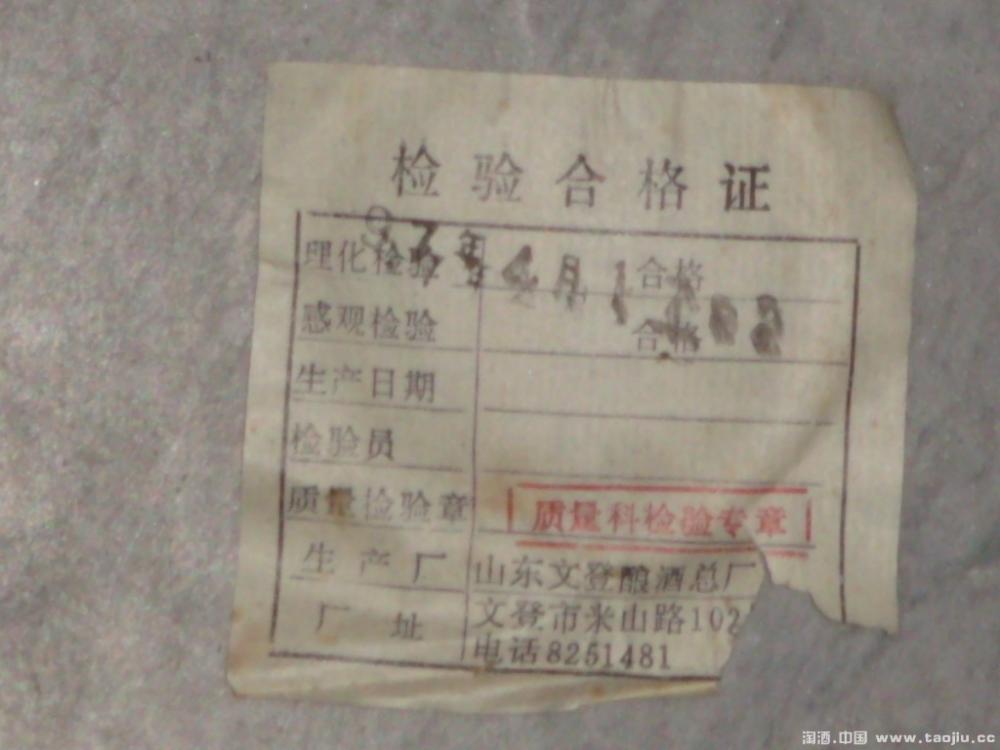 检验合格证
理化检验 合格
感观检验 合格
生产日期
检验员
质量检验章 质量科检验专章
生产厂 山东文登酿酒总厂
厂址 文登市米山路102
电话8251481
淘酒.中国 www.taojiu.cc